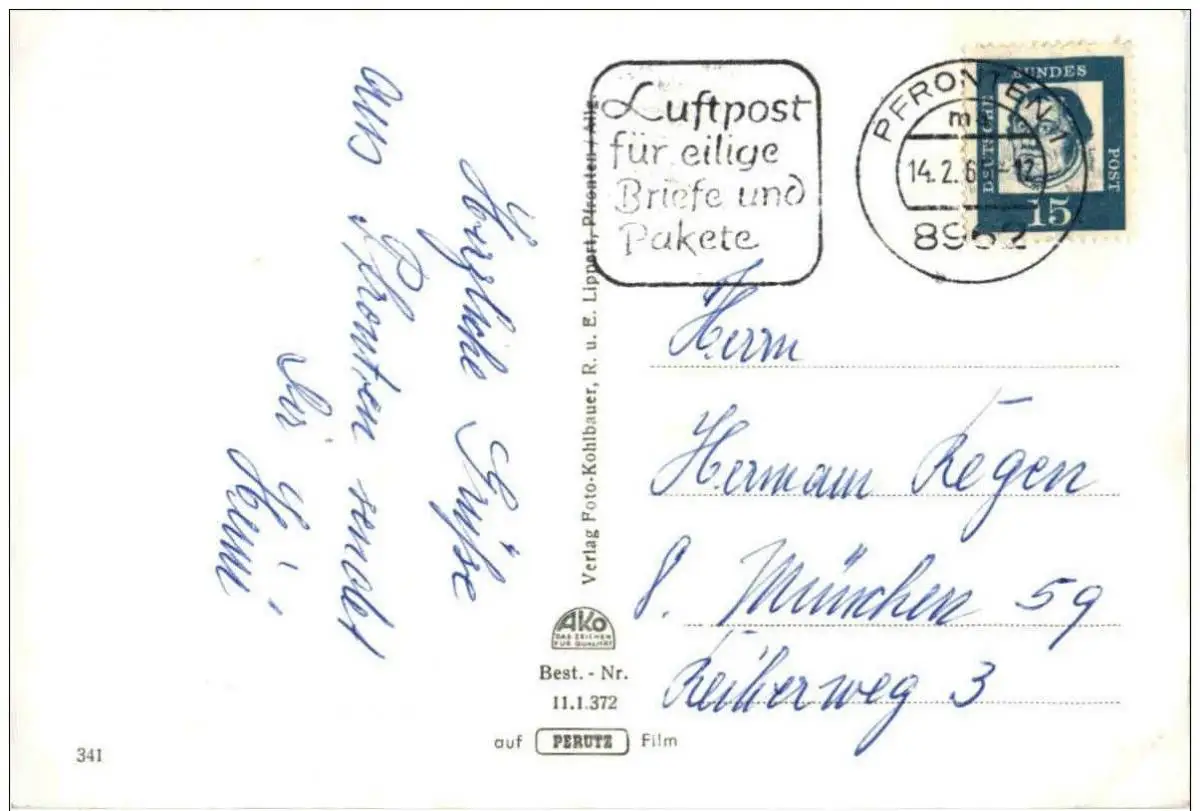 Herzliche Grüße
aus Pfronten sendet
Dir Heini
Verlag Foto-Kohlbauer, R. u. E. Lippert, Pfronten / Allg.
Luftpost
für eilige
Briefe und
Pakete
PFRONTEN 1
14. 2. 6 -12
8962
DEUTSCHE BUNDES POST
15
Herrn
Hermann Regen
8. München 59
Reiherweg 3
AKO
DAS ZEICHEN
FÜR QUALITÄT
Best. - Nr.
11.1.372
auf PERUTZ Film
341